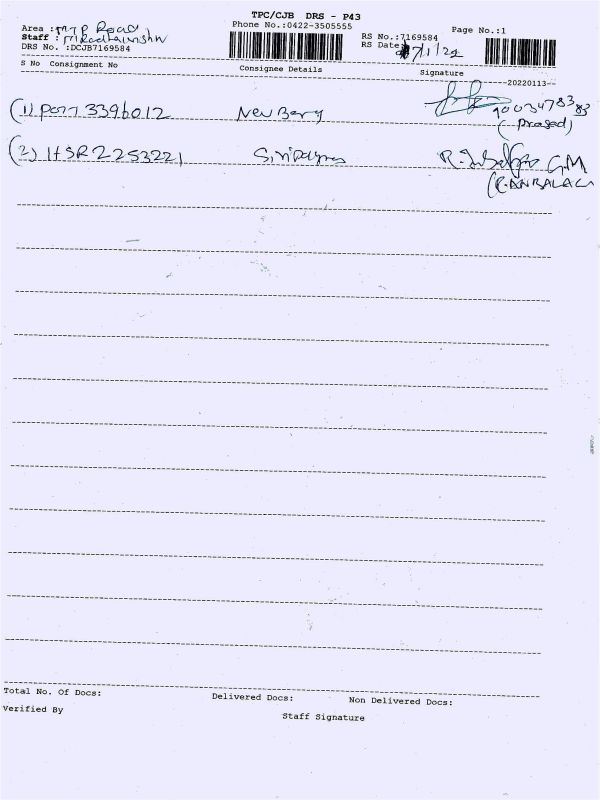 TPC/CJB DRS - P43
Area : MTP Road Phone No.:0422-3505555 RS No.:7169584 Page No.:1
Staff : RS Date: 7/1/22
DRS No. :DCJB7169584
S No Consignment No Consignee Details Signature
--20220113--
(1) 3396012 90034783 83
(Prasad)
(2) HSR2253221 GM
Total No. Of Docs: Delivered Docs: Non Delivered Docs:
Verified By Staff Signature